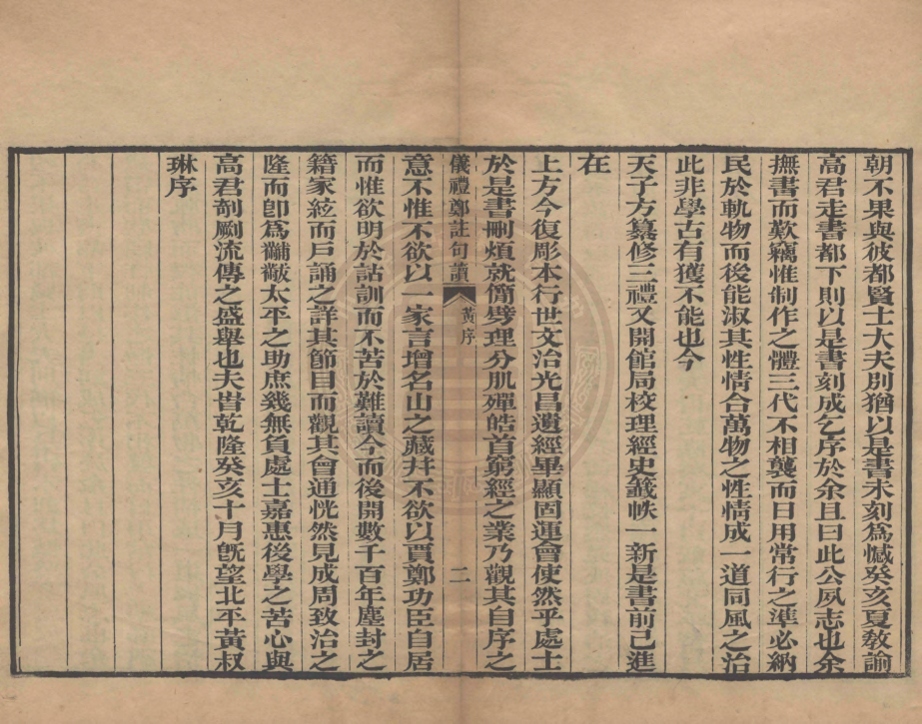 朝不果與彼都賢士大夫別猶以是書未刻爲憾癸亥夏敎諭
高君走書都下則以是書刻成乞序於余且曰此公夙志也余
撫書而歎竊惟制作之體三代不相襲而日用常行之準必納
民於軌物而後能淑其性情合萬物之性情成一道同風之治
此非學古有獲不能也今
天子方纂修三禮又開館局校理經史籤帙一新是書前已進
在
上方今復彫本行世文治光昌遺經畢顯固運會使然乎處士
於是書刪煩就簡劈理分肌殫皓首窮經之業乃觀其自序之
儀禮鄭註句讀 黃序 二
意不惟不欲以一家言增名山之藏幷不欲以賈鄭功臣自居
而惟欲明於詁訓而不苦於難讀今而後開數千百年塵封之
籍家絃而戶誦之詳其節目而觀其會通恍然見成周致治之
隆而卽爲黼黻太平之助庶幾無負處士嘉惠後學之苦心與
高君剞劂流傳之盛舉也夫旹乾隆癸亥十月旣望北平黃叔
琳序